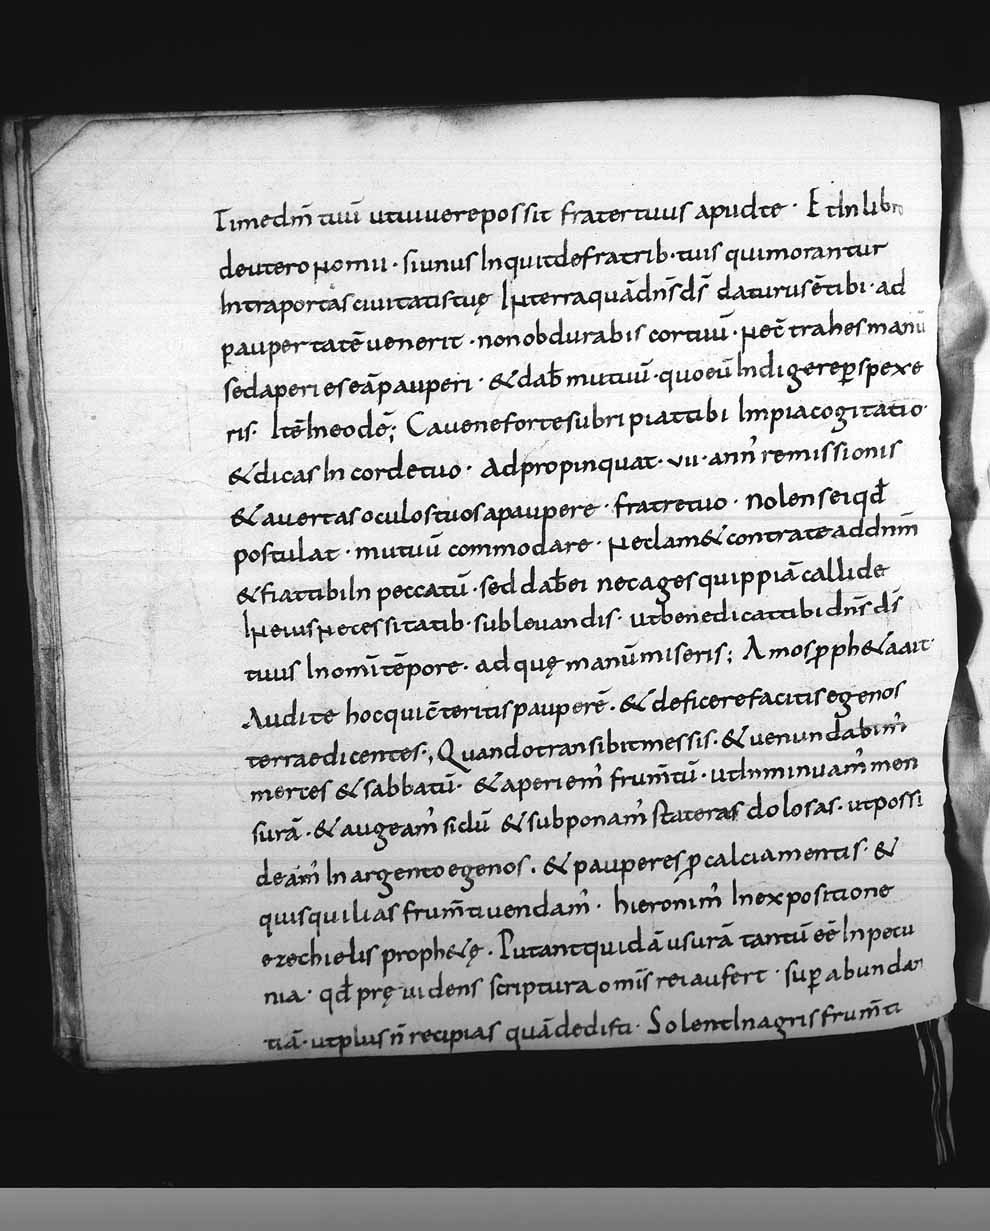 Timedm̄ tuū utuiuere possit frater tuus apud te · Et In libro
deuteronomii · si unus Inquit de fratrib · tuis qui morantur
Intra portas ciuitatis tuę In terra quā dn̄s ds̄ daturus ē tibi · ad
paupertatē uenerit · non obdurabis cor tuū · nec̄ trahes manū
sed aperies eā pauperi · & dab̄ mutuū · quo eū Indigere ꝑspexe
ris · Itē In eodē; Caue ne forte subripiat tibi Impia cogitatio ·
& dicas In corde tuo · Adpropinquat · vii · ann᾿ remissionis
& auertas oculos tuos a paupere · fratre tuo · nolens ei qđ
postulat · mutuū commodare · ne clam& contra te ad dnm̄
& fiat tibi In peccatū · sed dab̄ ei nec ages quippiā callide
In eius necessitatib · subleuandis · ut benedicat tibi dn̄s ds̄
tuus In omī tēpore · ad quę manū miseris; Amos ꝓph&a ait ·
Audite hoc qui c̄teritis pauperē · & deficere facitis egenos
terrae dicentes ·; Quando transibit messis · & uenundabim᾿
merces & sabbatū · & aperiem᾿ frum̄tū · ut Inminuam᾿ men
surā · & augeam᾿ sidū & subponam᾿ stateras dolosas · ut possi
deam᾿ In argento egenos · & pauperes ꝓ calciamentis · &
quisquilias frum̄ti uendam᾿ · hieronim᾿ In expositione
ezechielis proph&ę · Putant quidā usurā tantū eē In pecu
nia · qđ pręuidens scriptura omīs rei aufert · suꝑabundan
tiā · ut plus n̄ recipias quā dedisti · Solent In agris frum̄ti